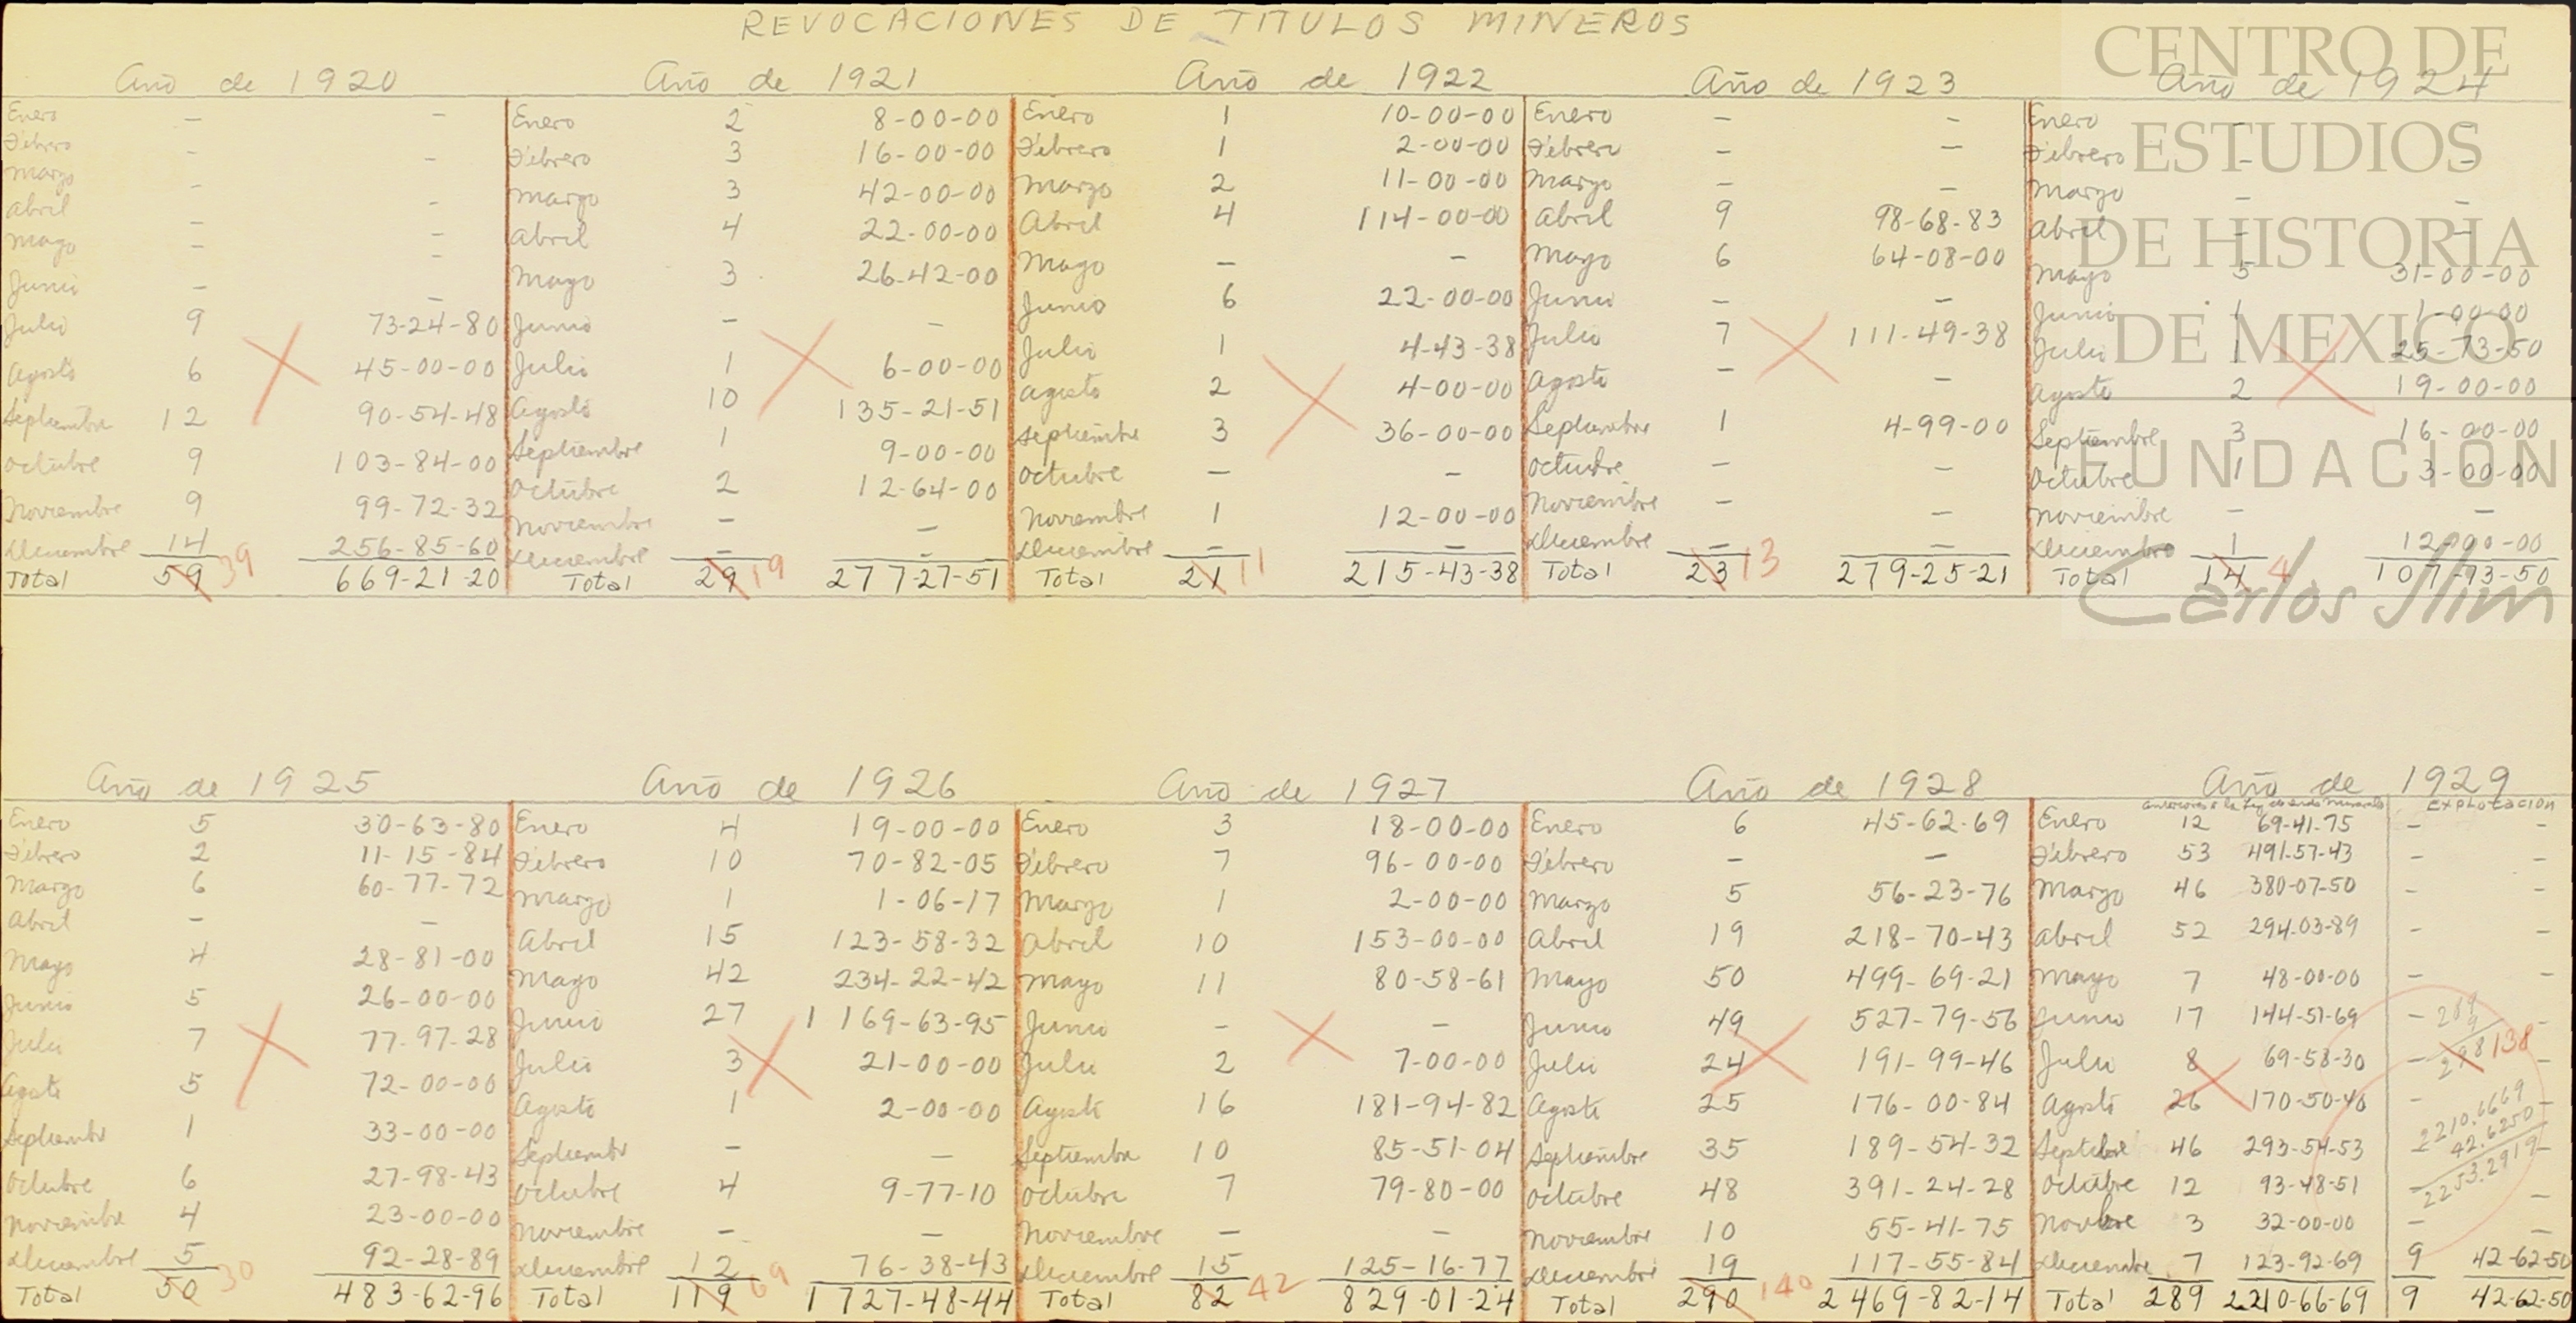 REVOCACIONES DE TITULOS MINEROS
CENTRO DE
ESTUDIOS
DE HISTORIA
DE MEXICO
FUNDACION
Carlos Slim
Año de 1920
Enero - -
Febrero - -
Marzo - -
Abril - -
Mayo - -
Junio - -
Julio 9 73-24-80
Agosto 6 45-00-00
Septiembre 12 90-54-48
Octubre 9 103-84-00
Noviembre 9 99-72-32
Diciembre 14 256-85-60
Total 59 39 669-21-20
Año de 1921
Enero 2 8-00-00
Febrero 3 16-00-00
Marzo 3 42-00-00
Abril 4 22-00-00
Mayo 3 26-42-00
Junio - -
Julio 1 6-00-00
Agosto 10 135-21-51
Septiembre 1 9-00-00
Octubre 2 12-64-00
Noviembre - -
Diciembre - -
Total 29 19 277-27-51
Año de 1922
Enero 1 10-00-00
Febrero 1 2-00-00
Marzo 2 11-00-00
Abril 4 114-00-00
Mayo - -
Junio 6 22-00-00
Julio 1 4-43-38
Agosto 2 4-00-00
Septiembre 3 36-00-00
Octubre - -
Noviembre 1 12-00-00
Diciembre - -
Total 21 11 215-43-38
Año de 1923
Enero - -
Febrero - -
Marzo - -
Abril 9 98-68-83
Mayo 6 64-08-00
Junio - -
Julio 7 111-49-38
Agosto - -
Septiembre 1 4-99-00
Octubre - -
Noviembre - -
Diciembre - -
Total 23 13 279-25-21
Año de 1924
Enero - -
Febrero - -
Marzo - -
Abril - -
Mayo 5 31-00-00
Junio 1 1-00-00
Julio 1 25-73-50
Agosto 2 19-00-00
Septiembre 3 16-00-00
Octubre 1 3-00-00
Noviembre - -
Diciembre 1 12-00-00
Total 14 4 107-93-50
Año de 1925
Enero 5 30-63-80
Febrero 2 11-15-84
Marzo 6 60-77-72
Abril - -
Mayo 4 28-81-00
Junio 5 26-00-00
Julio 7 77-97-28
Agosto 5 72-00-00
Septiembre 1 33-00-00
Octubre 6 27-98-43
Noviembre 4 23-00-00
Diciembre 5 92-28-89
Total 50 30 483-62-96
Año de 1926
Enero 4 19-00-00
Febrero 10 70-82-05
Marzo 1 1-06-17
Abril 15 123-58-32
Mayo 42 234-22-42
Junio 27 1 169-63-95
Julio 3 21-00-00
Agosto 1 2-00-00
Septiembre - -
Octubre 4 9-77-10
Noviembre - -
Diciembre 12 76-38-43
Total 119 69 1 727-48-44
Año de 1927
Enero 3 18-00-00
Febrero 7 96-00-00
Marzo 1 2-00-00
Abril 10 153-00-00
Mayo 11 80-58-61
Junio - -
Julio 2 7-00-00
Agosto 16 181-94-82
Septiembre 10 85-51-04
Octubre 7 79-80-00
Noviembre - -
Diciembre 15 125-16-77
Total 82 42 829-01-24
Año de 1928
Enero 6 45-62-69
Febrero - -
Marzo 5 56-23-76
Abril 19 218-70-43
Mayo 50 499-69-21
Junio 49 527-79-56
Julio 24 191-99-46
Agosto 25 176-00-84
Septiembre 35 189-54-32
Octubre 48 391-24-28
Noviembre 10 55-41-75
Diciembre 19 117-55-84
Total 290 140 2 469-82-14
Año de 1929
anteriores a la Ley de EXPLOTACION
Enero 12 69-41-75 - -
Febrero 53 491-57-43 - -
Marzo 46 380-07-50 - -
Abril 52 294-03-89 - -
Mayo 7 48-00-00 - -
Junio 17 144-51-69 - -
Julio 8 69-58-30 - -
Agosto 26 170-50-40 - -
Septbre 46 293-54-53 - -
Octubre 12 93-48-51 - -
Novbre 3 32-00-00 - -
Diciembre 7 123-92-69 9 42-62-50
Total 289 2210-66-69 9 42-62-50
289
9
298 138
2210.6669
42.6250
2253.2919